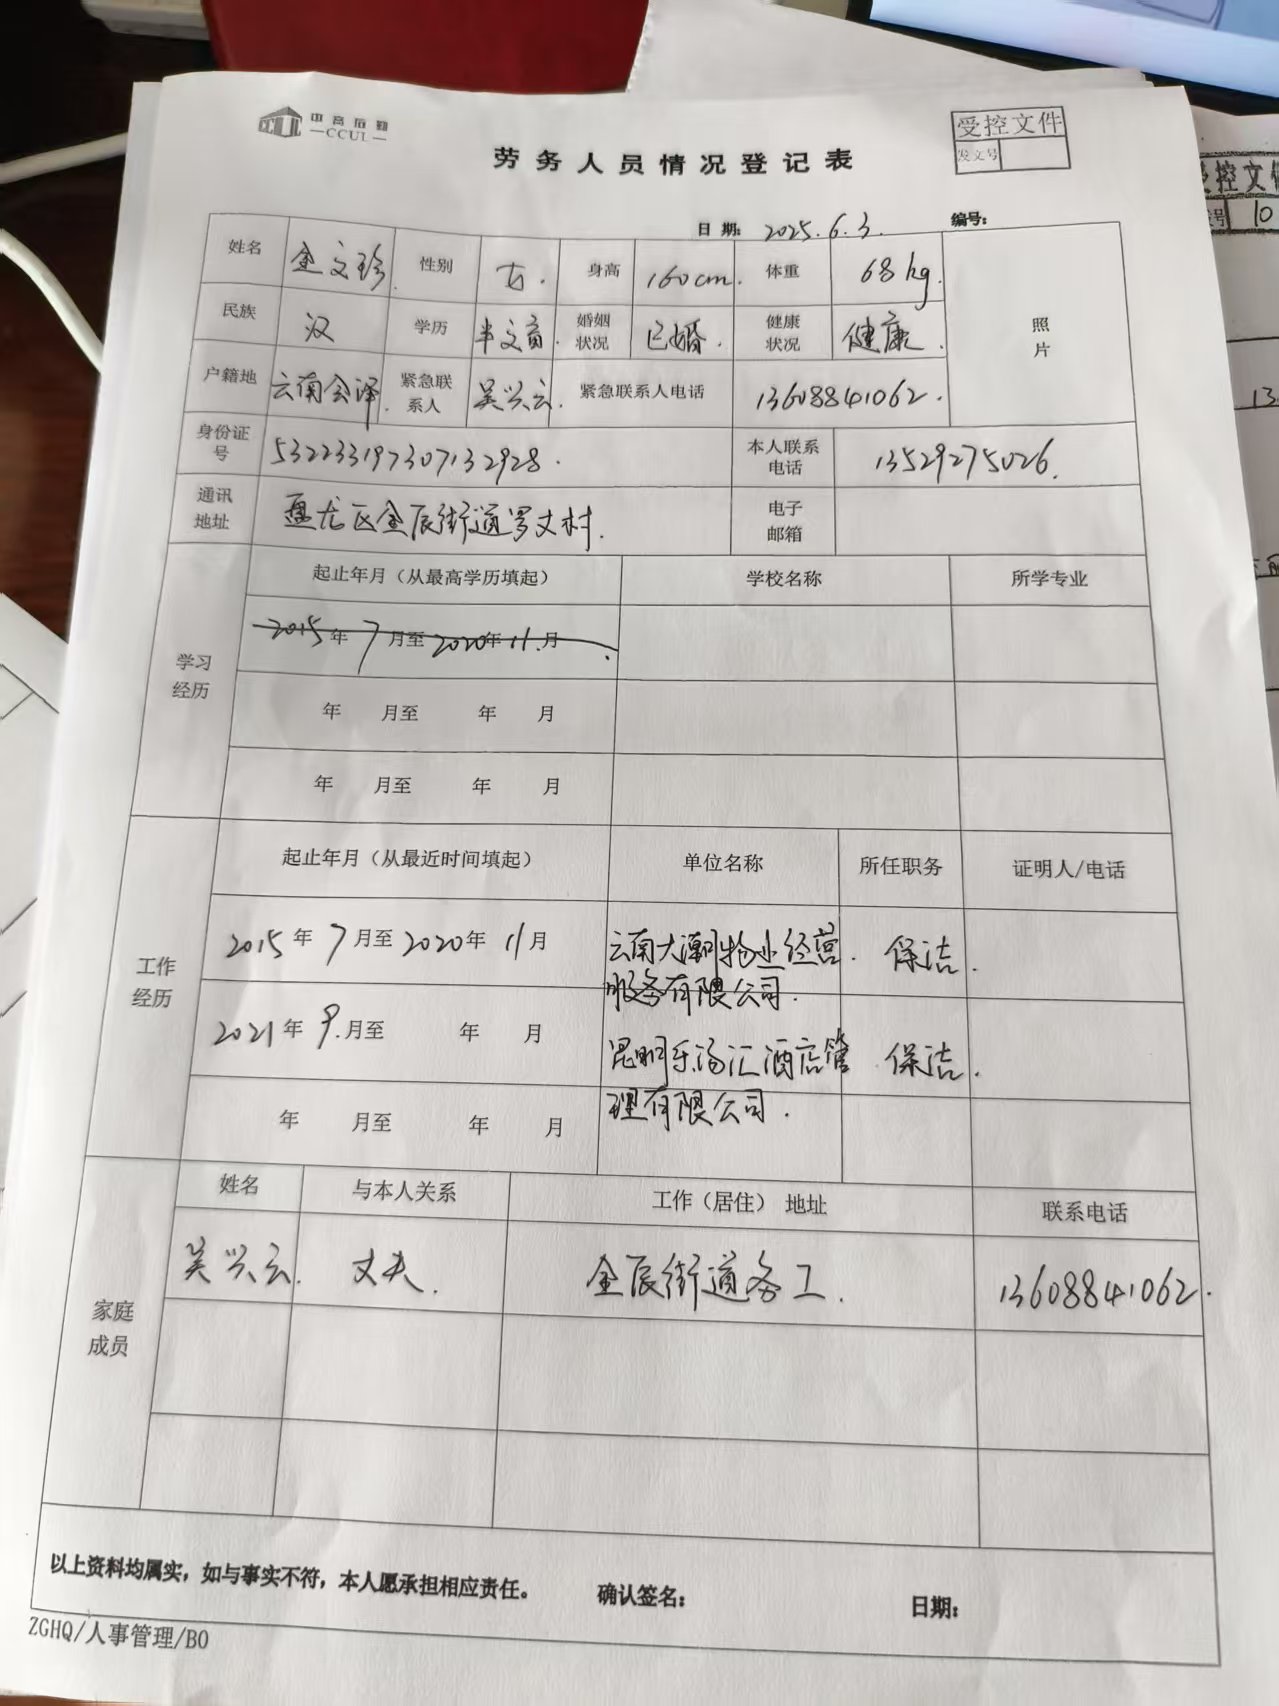 中高后勤
CCUL
受控文件
发文号
劳务人员情况登记表
日期: 2025.6.3. 编号:
姓名 金文珍. 性别 女. 身高 160cm. 体重 68kg.
照片
民族 汉 学历 半文盲. 婚姻状况 已婚. 健康状况 健康.
户籍地 云南会泽. 紧急联系人 吴兴云. 紧急联系人电话 13608841062.
身份证号 532233197307132928. 本人联系电话 13529275026.
通讯地址 盘龙区金辰街道罗丈村. 电子邮箱
学习经历
起止年月（从最高学历填起） 学校名称 所学专业
2015年 7月至 2020年 11.月
年 月至 年 月
年 月至 年 月
工作经历
起止年月（从最近时间填起） 单位名称 所任职务 证明人/电话
2015年 7月至 2020年 11月 云南大潮物业经营服务有限公司. 保洁.
2021年 9.月至 年 月 昆明乐汤汇酒店管理有限公司. 保洁.
年 月至 年 月
家庭成员
姓名 与本人关系 工作（居住） 地址 联系电话
吴兴云. 丈夫. 金辰街道务工. 13608841062.
以上资料均属实，如与事实不符，本人愿承担相应责任。 确认签名: 日期:
ZGHQ/人事管理/B0
受控文件
号 10
13